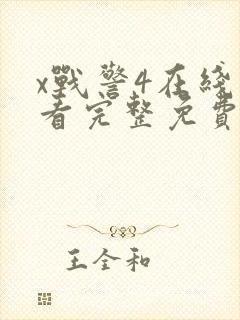 x戰警4在綫
看完整免費
王全和